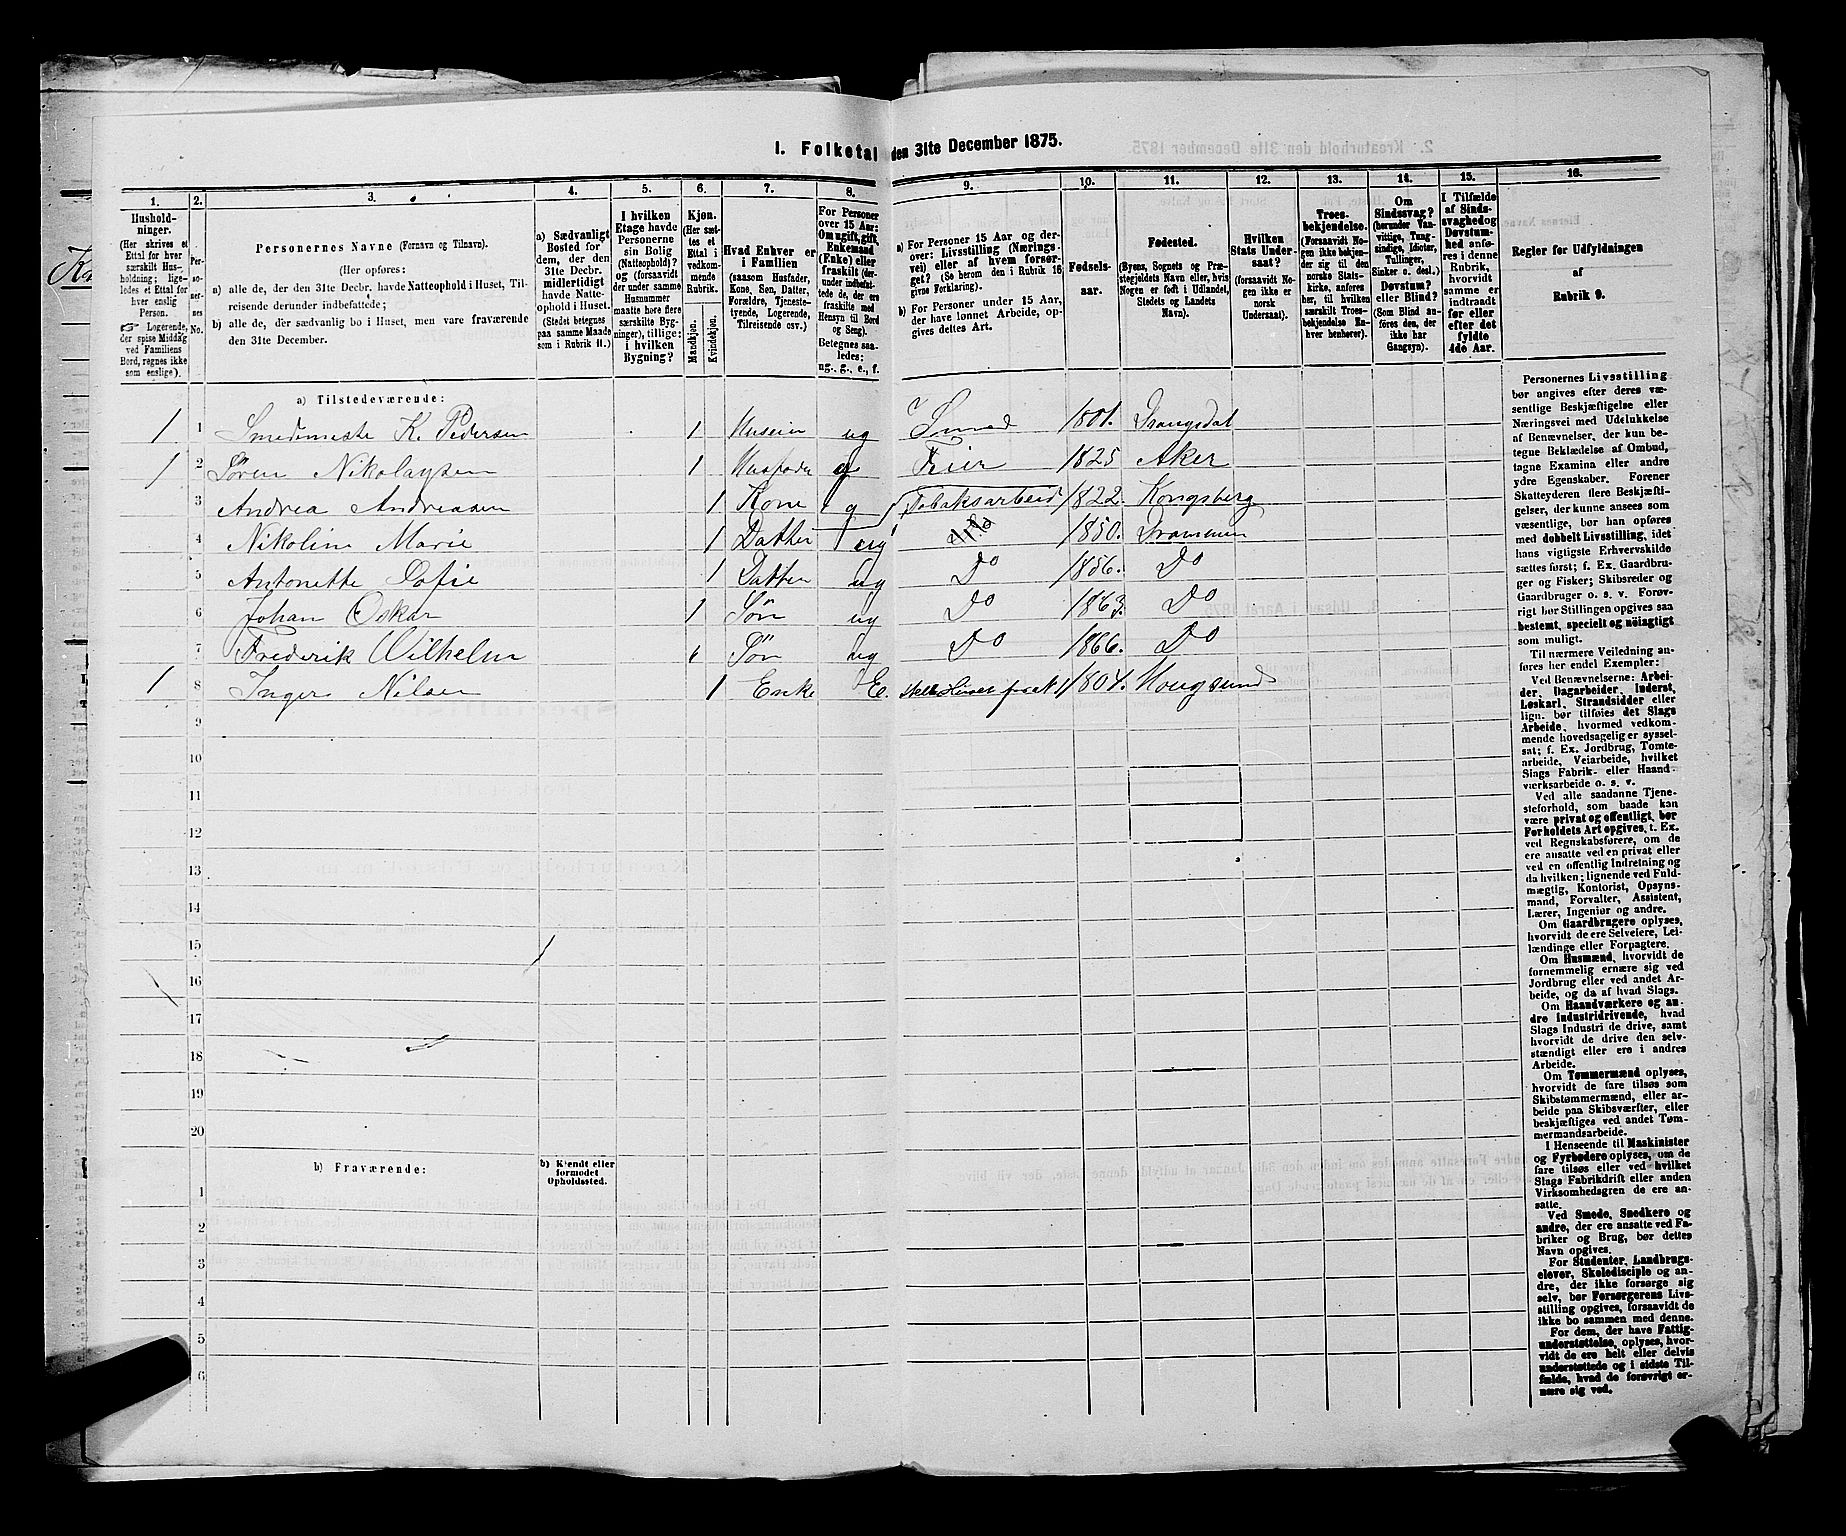 I. Folketal den 31te December 1875.
1.
2.
3.
4.
5.
6.
7.
8.
9.
10.
11.
12.
13.
14.
15.
16.
Hushold-
ninger.
(Her skrives et
Ettal for hver
særskilt Hus-
holdning; lige-
ledes et Ettal for
hver enslig
Person.
☞ Logerende,
der spise Middag
ved Familiens
Bord, regnes ikke
som enslige).
Per-
so-
ner-
nes
No.
Personernes Navne (Fornavn og Tilnavn).
(Her opføres:
a) alle de, der den 31te Decbr. havde Natteophold i Huset, Til-
reisende derunder indbefattede;
b) alle de, der sædvanlig bo i Huset, men vare fraværende
den 31te December.
a) Sædvanligt
Bosted for
dem, der den
31te Decbr.
midlertidigt
havde Natte-
ophold i Huset.
(Stedet betegnes
paa samme Maade
som i Rubrik 11.)
I hvilken
Etage havde
Personerne
sin Bolig
(Natteophold)?
og (forsaavidt
der under samme
Husnummer
maatte høre flere
særskilte Byg-
ninger), tillige:
i hvilken
Bygning?
Kjøn.
(Her sæt-
tes et
Ettal i
vedkom-
mende
Rubrik.
Mandkjøn.
Kvindekjøn.
Hvad Enhver er
i Familien
(saasom Husfader,
Kone, Søn, Datter,
Forældre, Tjeneste-
tyende, Logerende,
Tilreisende osv.)
For Personer
over 15 Aar:
Om ugift, gift,
Enkemand
(Enke) eller
fraskilt (der-
under indbefat-
tede de, der ere
fraskilte med
Hensyn til Bord
og Seng).
Betegnes saa-
ledes:
ug., g., e., f.
a) For Personer 15 Aar og der-
over: Livsstilling (Nærings-
vei) eller af hvem forsør-
get? (Se herom den i Rubrik 16
givne Forklaring).
b) For Personer under 15 Aar,
der have lønnet Arbeide, op-
gives dettes Art.
Fødsels-
aar.
Fødested.
(Byens, Sognets og Præ-
stegjeldets Navn eller, hvis
Nogen er født i Udlandet,
Stedets og Landets
Navn).
Hvilken
Stats Under-
saat?
(forsaavidt No-
gen ikke er
norsk
Undersaat).
Troes-
bekjendelse.
(Forsaavidt No-
gen ikke bekjen-
der sig til den
norske Stats-
kirke, anføres
her, til hvilken
særskilt Troes-
bekjendelse En-
hver henhører).
Om
Sindssvag?
(herunder Van-
vittige, Tung-
sindige, Idioter,
Tullinger,
Sinker o. desl.)
Døvstum?
eller Blind?
(Som Blind an-
føres den, der
ikke har
Gangsyn).
I Tilfælde
af Sinds-
svaghed og
Døvstum-
hed anfø-
res i denne
Rubrik,
hvorvidt
samme er
indtraadt
før eller
efter det
fyldte
4de Aar.
Regler for Udfyldningen
af
Rubrik 9.
a) Tilstedeværende:
1 1 Smedmeste K. Pedersen 1 Huseier ug Smed 1801. Drangedal
1 2 Søren Nikolaysen 1 Husfader g Feier 1825 Aker
3 Andrea Andreasen 1 Kone g Tobaksarbeid 1822. Kongsberg
4 Nikoline Marie 1 Datter ug 1850. Drammen
5 Antonette Sofie 1 Datter ug Do 1856. Do
6 Johan Oskar 1 Søn ug Do 1863. Do
7 Frederik Wilhelm 1 Søn ug Do 1866. Do
1 8 Inger Nilsen 1 Enke E. 1804. Hougsund
9
10
11
12
13
14
15
16
17
18
19
20
b) Fraværende:
b) Kjendt eller
formodet
Opholdssted.
1
2
3
4
5
6
Personernes Livsstilling
bør angives efter deres væ-
sentlige Beskjæftigelse eller
Næringsvei med Udelukkelse
af Benævnelser, der kun be-
tegne Beklædelse af Ombud,
tagne Examina eller andre
ydre Egenskaber. Forener
Skatteyderen flere Beskjæfti-
gelser, der kunne ansees som
væsentlige, bør han opføres
med dobbelt Livsstilling, idet
hans vigtigste Erhvervskilde
sættes først; f. Ex. Gaardbru-
ger og Fisker; Skibsreder og
Gaardbruger o. s. v. Forøv-
rigt bør Stillingen opgives saa
bestemt, specielt og nøiagtigt
som muligt.
Til nærmere Veiledning an-
føres her endel Exempler:
Ved Benævnelserne: Arbei-
der, Dagarbeider, Inderst,
Løskarl, Strandsidder eller
lign. bør tilføies det Slags
Arbeide, hvormed vedkom-
mende hovedsagelig er syssel-
sat; f. Ex. Jordbrug, Tomte-
arbeide, Veiarbeide, hvilket
Slags Fabrik- eller Haand-
værksarbeide o. s. v.
Ved alle saadanne Tjene-
steforhold, som baade kan
være privat og offentligt, bør
Forholdets Art opgives, t. Ex.
ved Regnskabsførere, om de
ere ansatte ved en privat eller
ved en offentlig Indretning og
da hvilken; lignende ved Fuld-
mægtig, Kontorist, Opsyns-
mand, Forvalter, Assistent,
Lærer, Ingeniør og andre.
Om Gaardbrugere oplyses,
hvorvidt de ere Selveiere, Lei-
lændinge eller Forpagtere.
Om Husmænd, hvorvidt de
fornemmelig ernære sig ved
Jordbrug eller ved andet Ar-
beide, og da af hvad Slags.
Om Haandværkere og an-
dre Industridrivende, hvad
Slags Industri de drive, samt
hvorvidt de drive den selv-
stændigt eller ere i andres
Arbeide.
Om Tømmermænd oplyses,
hvorvidt de fare tilsøs som
Skibstømmermænd, eller ar-
beide paa Skibsværfter, eller
beskjæftiges ved andet Tøm-
mermandsarbeide.
I Henseende til Maskinister
og Fyrbødere oplyses, om de
fare tilsøs eller ved hvilket
Slags Fabrikdrift eller anden
Virksomhedsgren de ere an-
satte.
Ved Smede, Snedkere og
andre, der ere ansatte ved Fa-
briker og Brug, bør dettes
Navn opgives.
For Studenter, Landbrugs-
elever, Skoledisciple og an-
dre, der ikke forsørge sig
selv, bør Forsørgerens Livs-
stilling opgives, forsaavidt de
ikke bo sammen med denne.
For dem, der have Fattig-
understøttelse, oplyses, hvor-
vidt de ere helt eller delvis
understøttede og i sidste Til-
fælde, hvad de forøvrigt er-
nære sig ved.